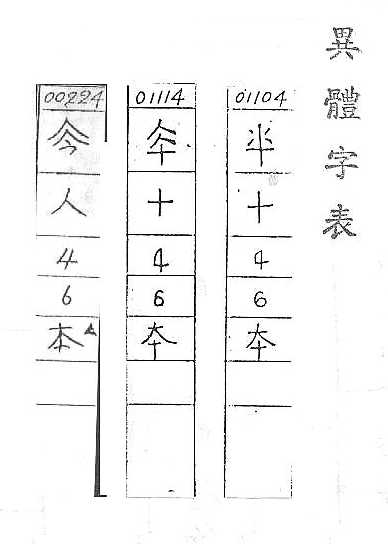 異體字表
01104
十
4
6
夲
01114
十
4
6
夲
00224
人
4
6
本